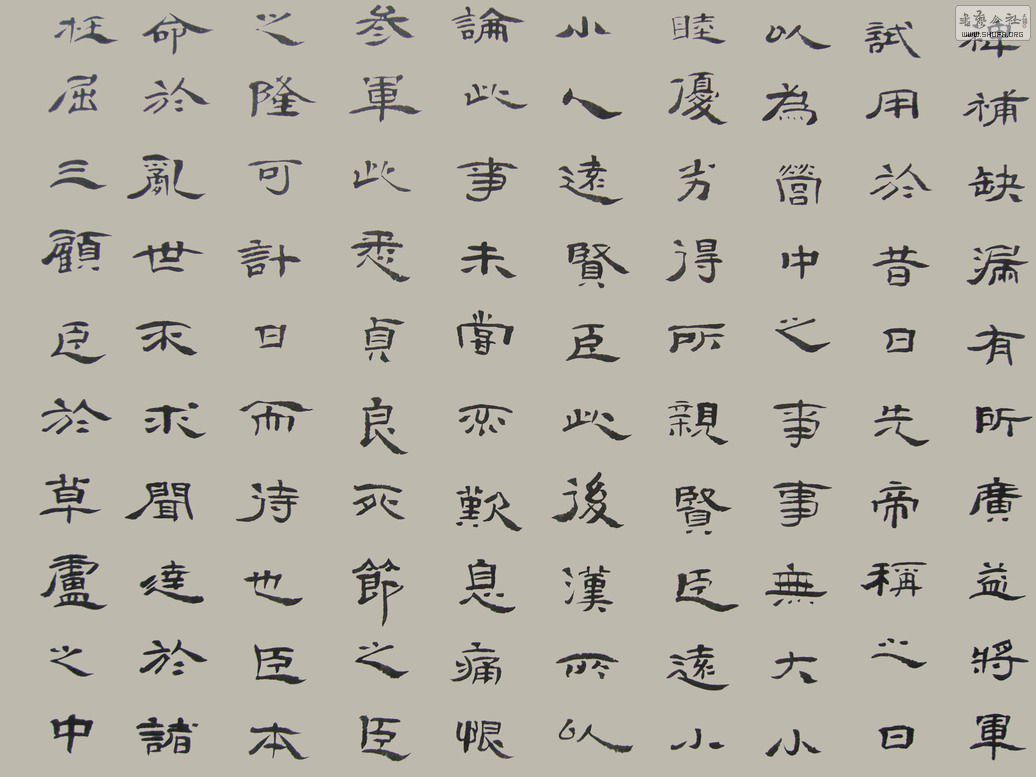 裨補缺漏有所廣益將軍
試用於昔日先帝稱之曰
以為營中之事事無大小
睦優劣得所親賢臣遠小
小人遠賢臣此後漢所以
論此事未嘗不歎息痛恨
參軍此悉貞良死節之臣
之隆可計日而待也臣本
命於亂世不求聞達於諸
枉屈三顧臣於草盧之中
書藝公社
WWW.SHUFA.ORG